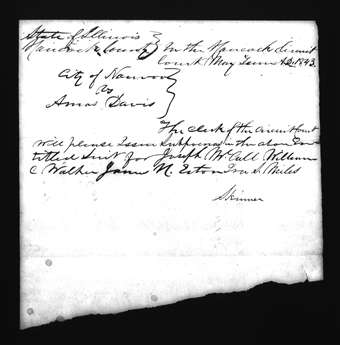 State of Illinois
Hancock County } In the Hancock Circuit
Court May Term AD. 1843.
City of Nauvoo
vs
Amos Davis
The clerk of the circuit Court
will please Issue Subpoena in the above En-
titled Suit for Joseph McCall William
C Walker James M. Eaton Ira S. Miles
Skinner